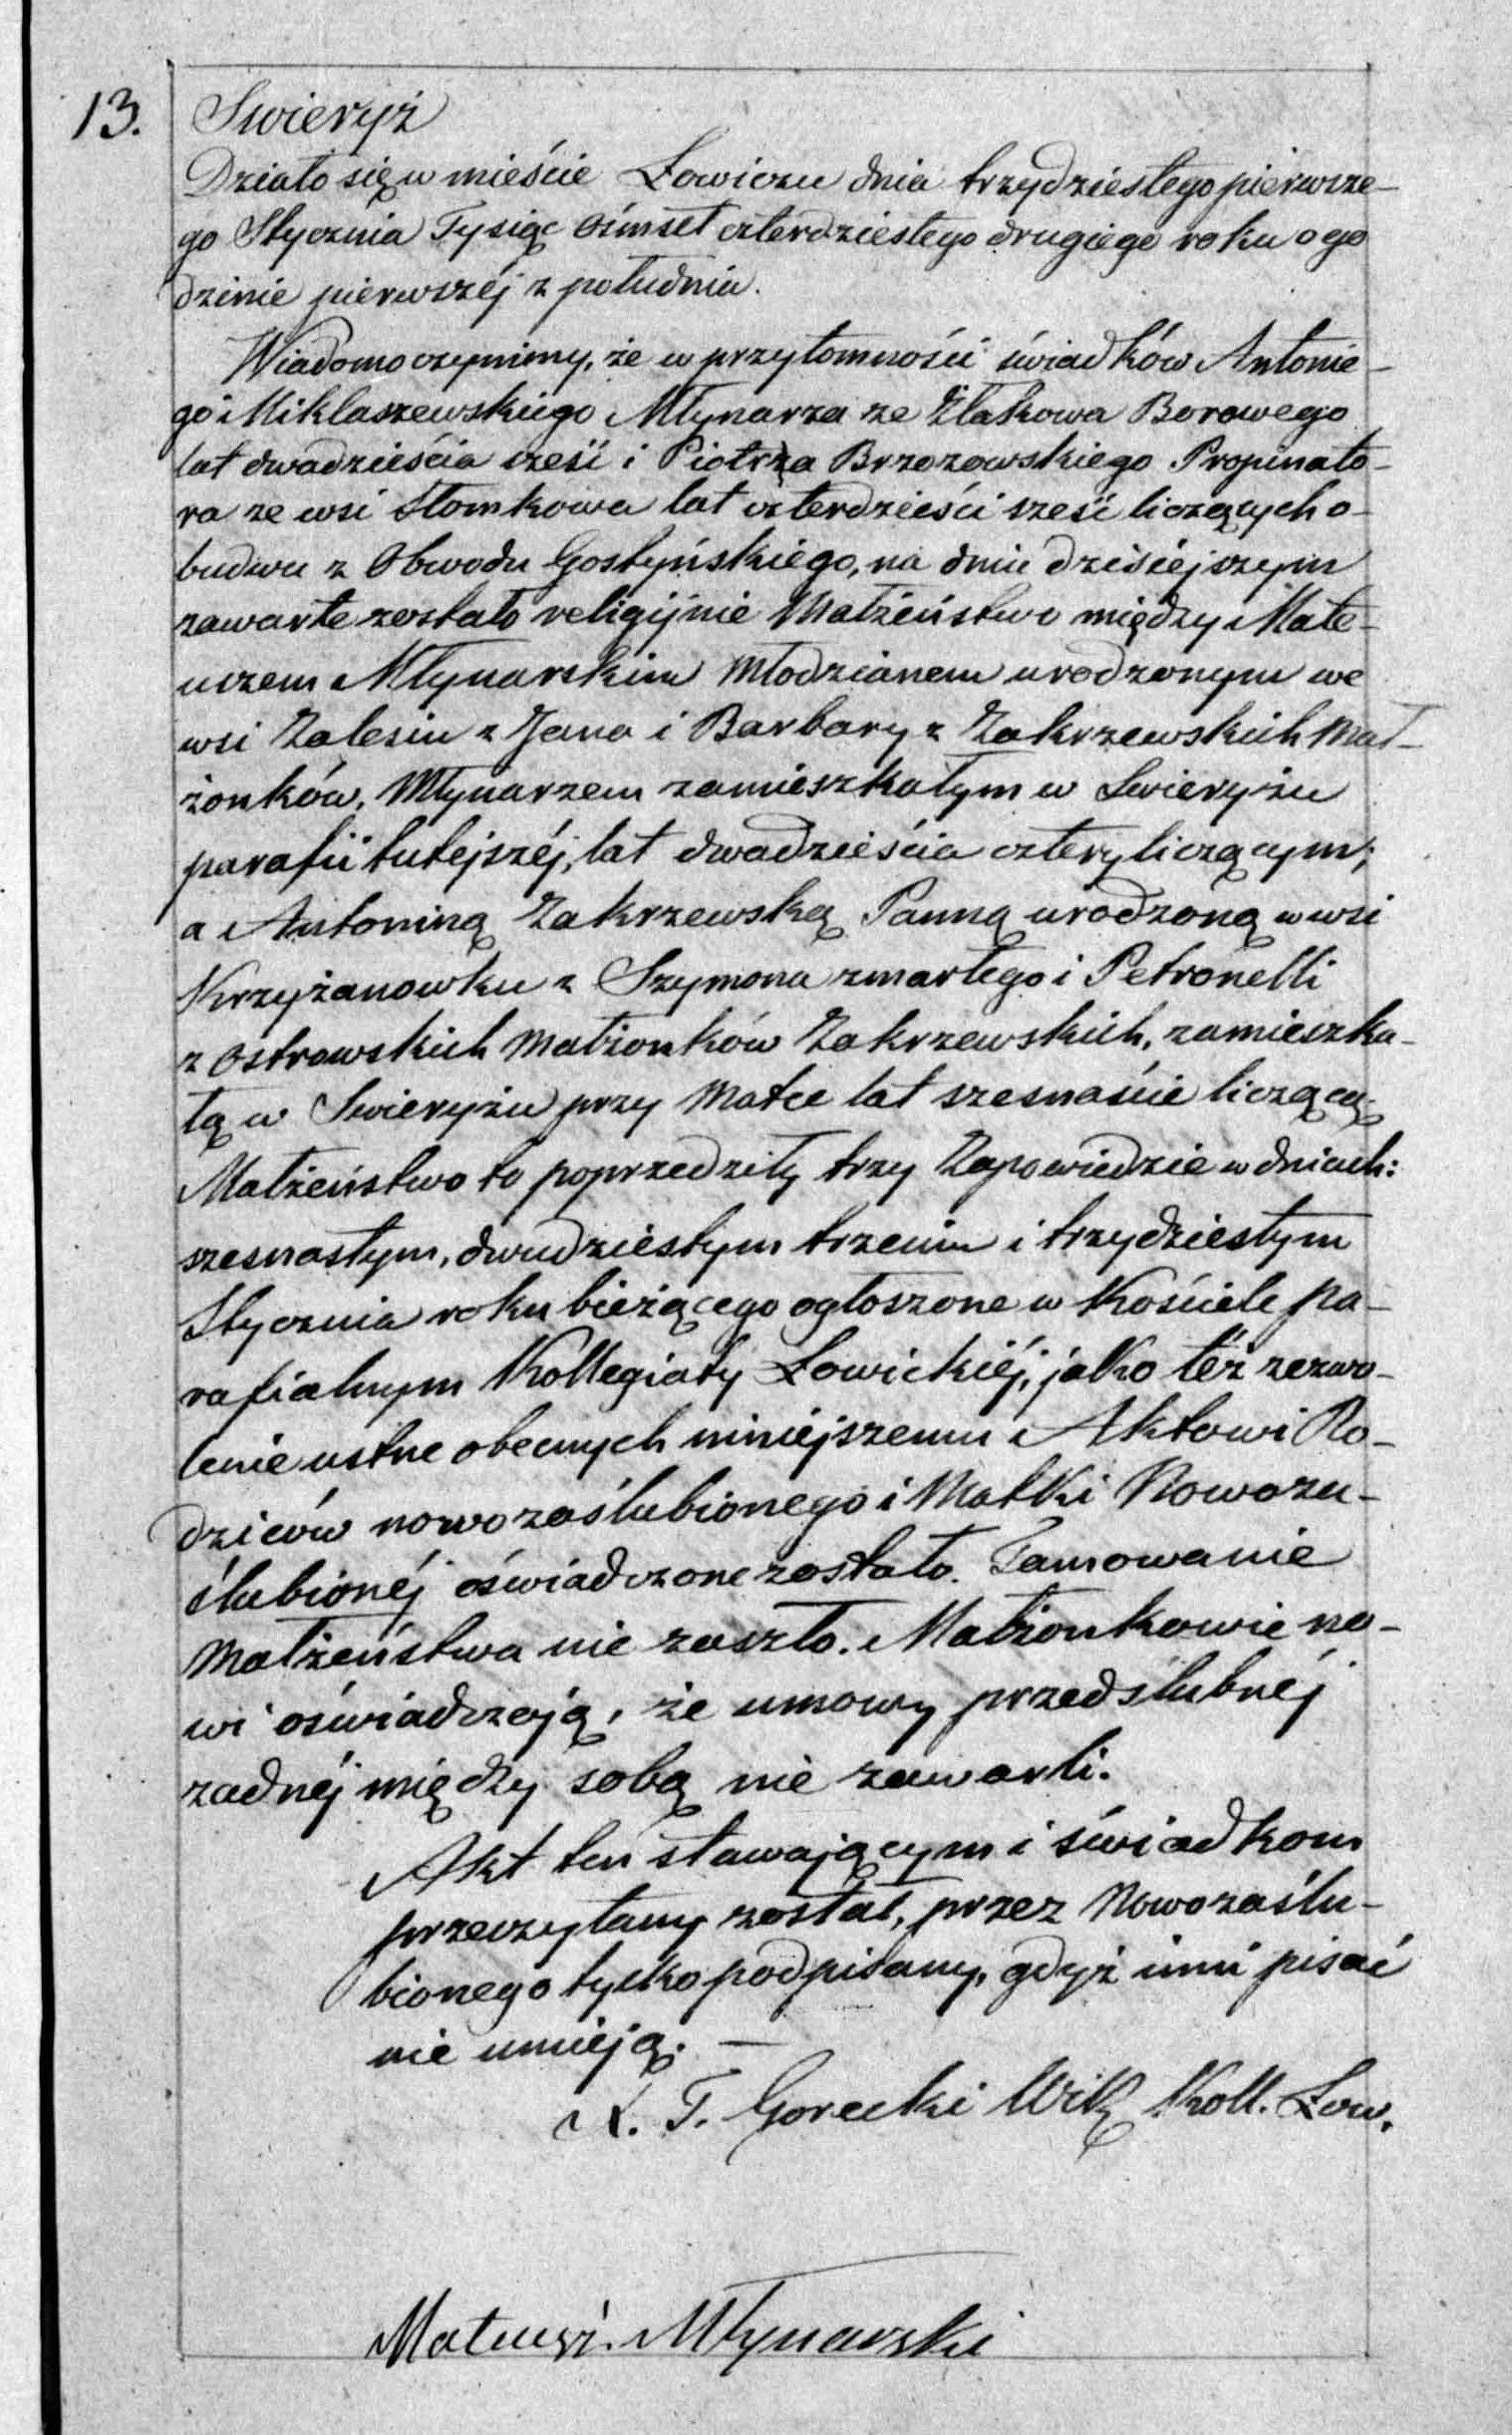 13.
Swieryż
Działo się w mieście Łowiczu dnia trzydziestego pierwsze-
go Stycznia Tysiąc ośmset czterdziestego drugiego roku o go
dzinie pierwszéj z południa.
Wiadomo czynimy, że w przytomności świadków Antonie-
go Miklaszewskiego Młynarza ze Złakowa Borowego
lat dwadzieścia sześć i Piotra Brzozowskiego Propinato-
ra ze wsi Słomkowa lat czterdzieści sześć liczących o-
budwu z Obwodu Gostyńskiego, na dniu dzisiéjszym
zawarte zostało religijnie Małżeństwo między Mate-
uszem Młynarskim Młodzianem urodzonym we
wsi Zalesiu z Jana i Barbary z Zakrzewskich Mał-
żonków, Młynarzem zamieszkałym w Swieryżu
parafii tutejszéj, lat dwadzieścia cztery liczącym;
a Antoniną Zakrzewską Panną urodzoną w wsi
Krzyżanowku z Szymona zmarłego i Petronelli
z Ostrowskich Małżonków Zakrzewskich, zamieszka-
łą w Swieryżu przy Matce lat szesnaście liczącą.
Małżeństwo to poprzedziły trzy Zapowiedzie w dniach:
szesnastym, dwudziestym trzecim i trzydziestym
Stycznia roku bieżącego ogłoszone w Kościele pa-
rafialnym Kollegiaty Łowickiéj, jako też zezwo-
lenie ustne obecnych niniejszemu Aktowi Ro-
dziców nowozaślubionego i Matki Nowoza-
ślubionéj oświadczone zostało. Tamowanie
Małżeństwa nie zaszło. Małżonkowie no-
wi oświadczają, że umowy przedślubnéj
zadnéj między sobą nie zawarli.
Akt ten stawającym i świadkom
przeczytany został, przez Nowozaślu-
bionego tylko podpisany, gdyż inni pisać
nie umieją. —
X. T. Gorecki Wik. Koll. Łow.
Mateusz Młynarski